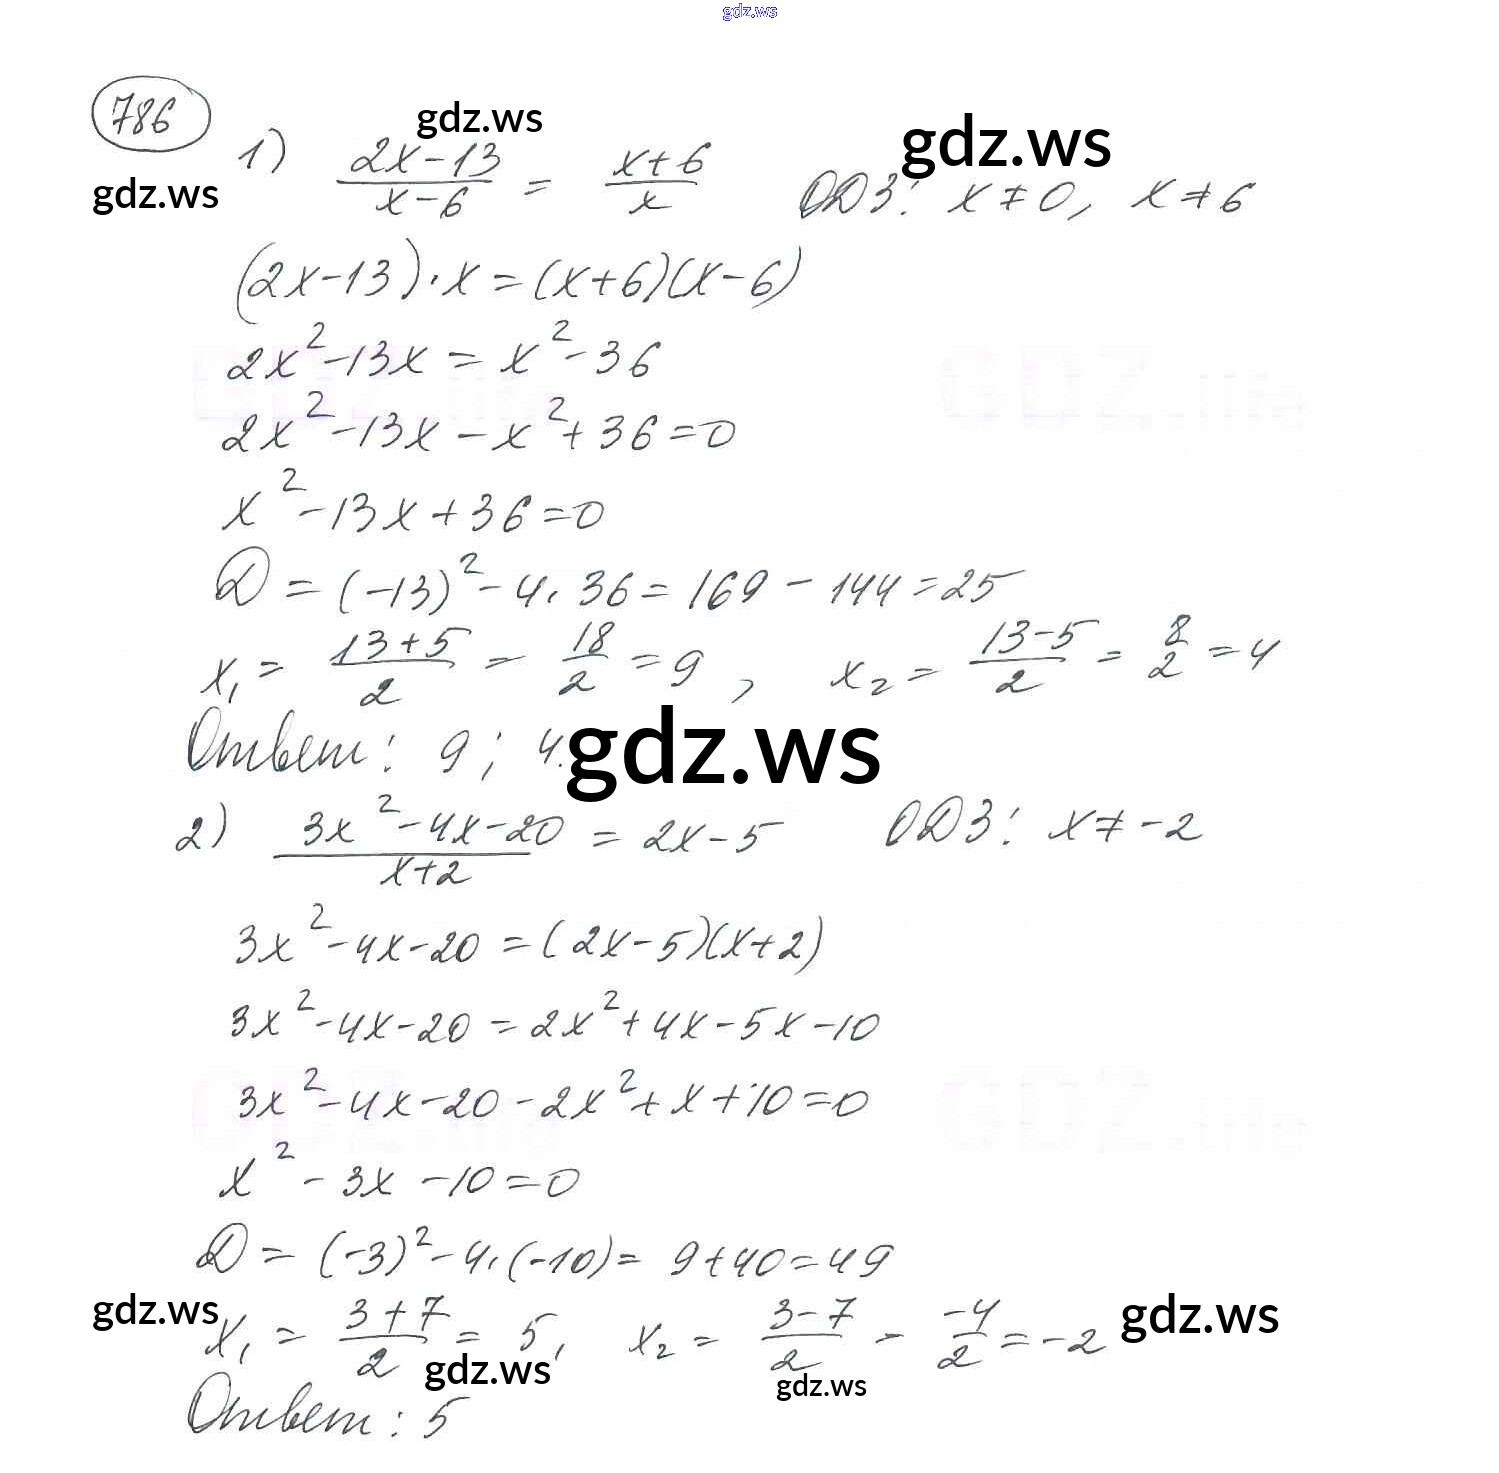 gdz.ws
786
gdz.ws
gdz.ws
gdz.ws
1) (2x-13)/(x-6) = (x+6)/x ОДЗ: x≠0, x≠6
(2x-13)·x=(x+6)(x-6)
2x²-13x=x²-36
2x²-13x-x²+36=0
x²-13x+36=0
D=(-13)²-4·36=169-144=25
x₁=(13+5)/2=18/2=9, x₂=(13-5)/2=8/2=4
Ответ: 9; 4.
gdz.ws
2) (3x²-4x-20)/(x+2) = 2x-5 ОДЗ: x≠-2
3x²-4x-20=(2x-5)(x+2)
3x²-4x-20=2x²+4x-5x-10
3x²-4x-20-2x²+x+10=0
x²-3x-10=0
D=(-3)²-4·(-10)=9+40=49
gdz.ws
x₁=(3+7)/2=5, x₂=(3-7)/2=-4/2=-2
gdz.ws
gdz.ws
gdz.ws
Ответ: 5
GDZ.life
GDZ.life
GDZ.life
GDZ.life